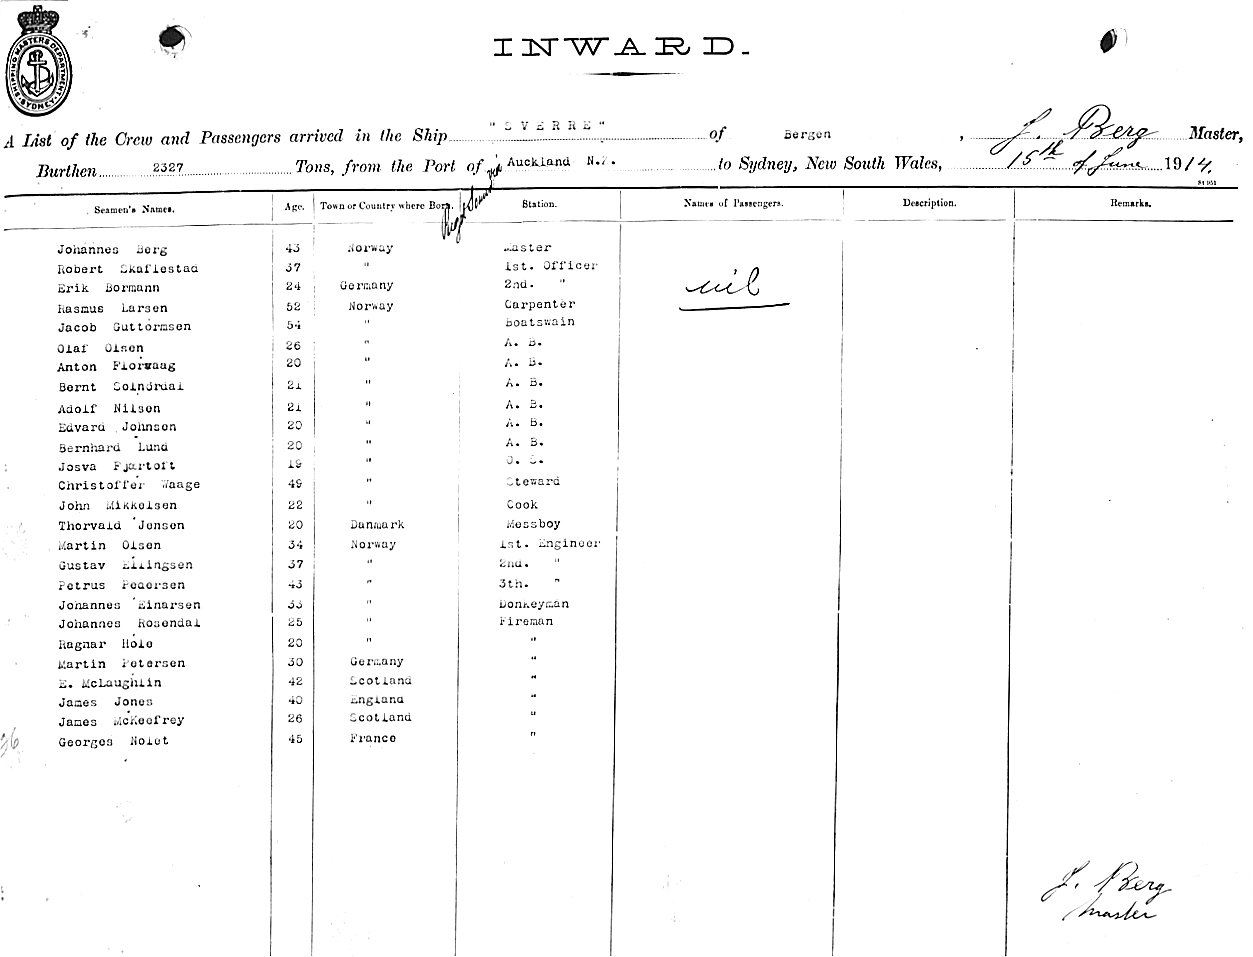 SHIPPING MASTERS DEPARTMENT. SYDNEY.
INWARD.
A List of the Crew and Passengers arrived in the Ship "SVERRE" of Bergen, J. Berg Master,
Burthen 2327 Tons, from the Port of Auckland N.Z. to Sydney, New South Wales, 15th of June 1914.
Seamen's Names. Age. Town or Country where Born. Station. Names of Passengers. Description. Remarks.
Johannes Berg 43 Norway Master
Robert Skaflestad 37 " 1st. Officer
Erik Bormann 24 Germany 2nd. " nil
Rasmus Larsen 52 Norway Carpenter
Jacob Guttormsen 54 " Boatswain
Olaf Olsen 26 " A. B.
Anton Florvaag 20 " A. B.
Bernt 21 " A. B.
Adolf Nilsen 21 " A. B.
Edvard Johnsen 20 " A. B.
Bernhard Lund 20 " A. B.
Josva Fjärtoft 19 " O. S.
Christoffer Waage 49 " Steward
John Mikkelsen 22 " Cook
Thorvald Jensen 20 Danmark Messboy
Martin Olsen 34 Norway 1st. Engineer
Gustav Ellingsen 37 " 2nd. "
Petrus Pedersen 43 " 3th. "
Johannes Einarsen 33 " Donkeyman
Johannes Rosendal 25 " Fireman
Ragnar Hole 20 " "
Martin Petersen 30 Germany "
E. McLaughlin 42 Scotland "
James Jones 40 England "
James McKeefrey 26 Scotland "
Georges Nolet 45 France "
J. Berg
Master